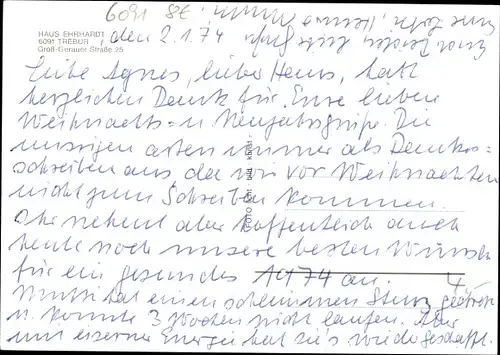 HAUS EHRHARDT
6091 TREBUR
Groß-Gerauer Straße 25
6091
den 2.1.74
Liebe Agnes, lieber Hans, habt
herzlichen Dank für Eure lieben
Weihnachts- u. Neujahrsgrüße. Die
unsrigen arten immer als Dankes=
schreiben aus, da wir vor Weihnachten
nicht zum Schreiben kommen.
Ihr nehmt aber hoffentlich auch
heute noch unsere besten Wünsche
für ein gesundes 1974 an.
Mutti hat einen schlimmen Sturz
u. konnte 3 Wochen nicht laufen. Aber
mit eiserner Energie hat sie's wieder geschafft.